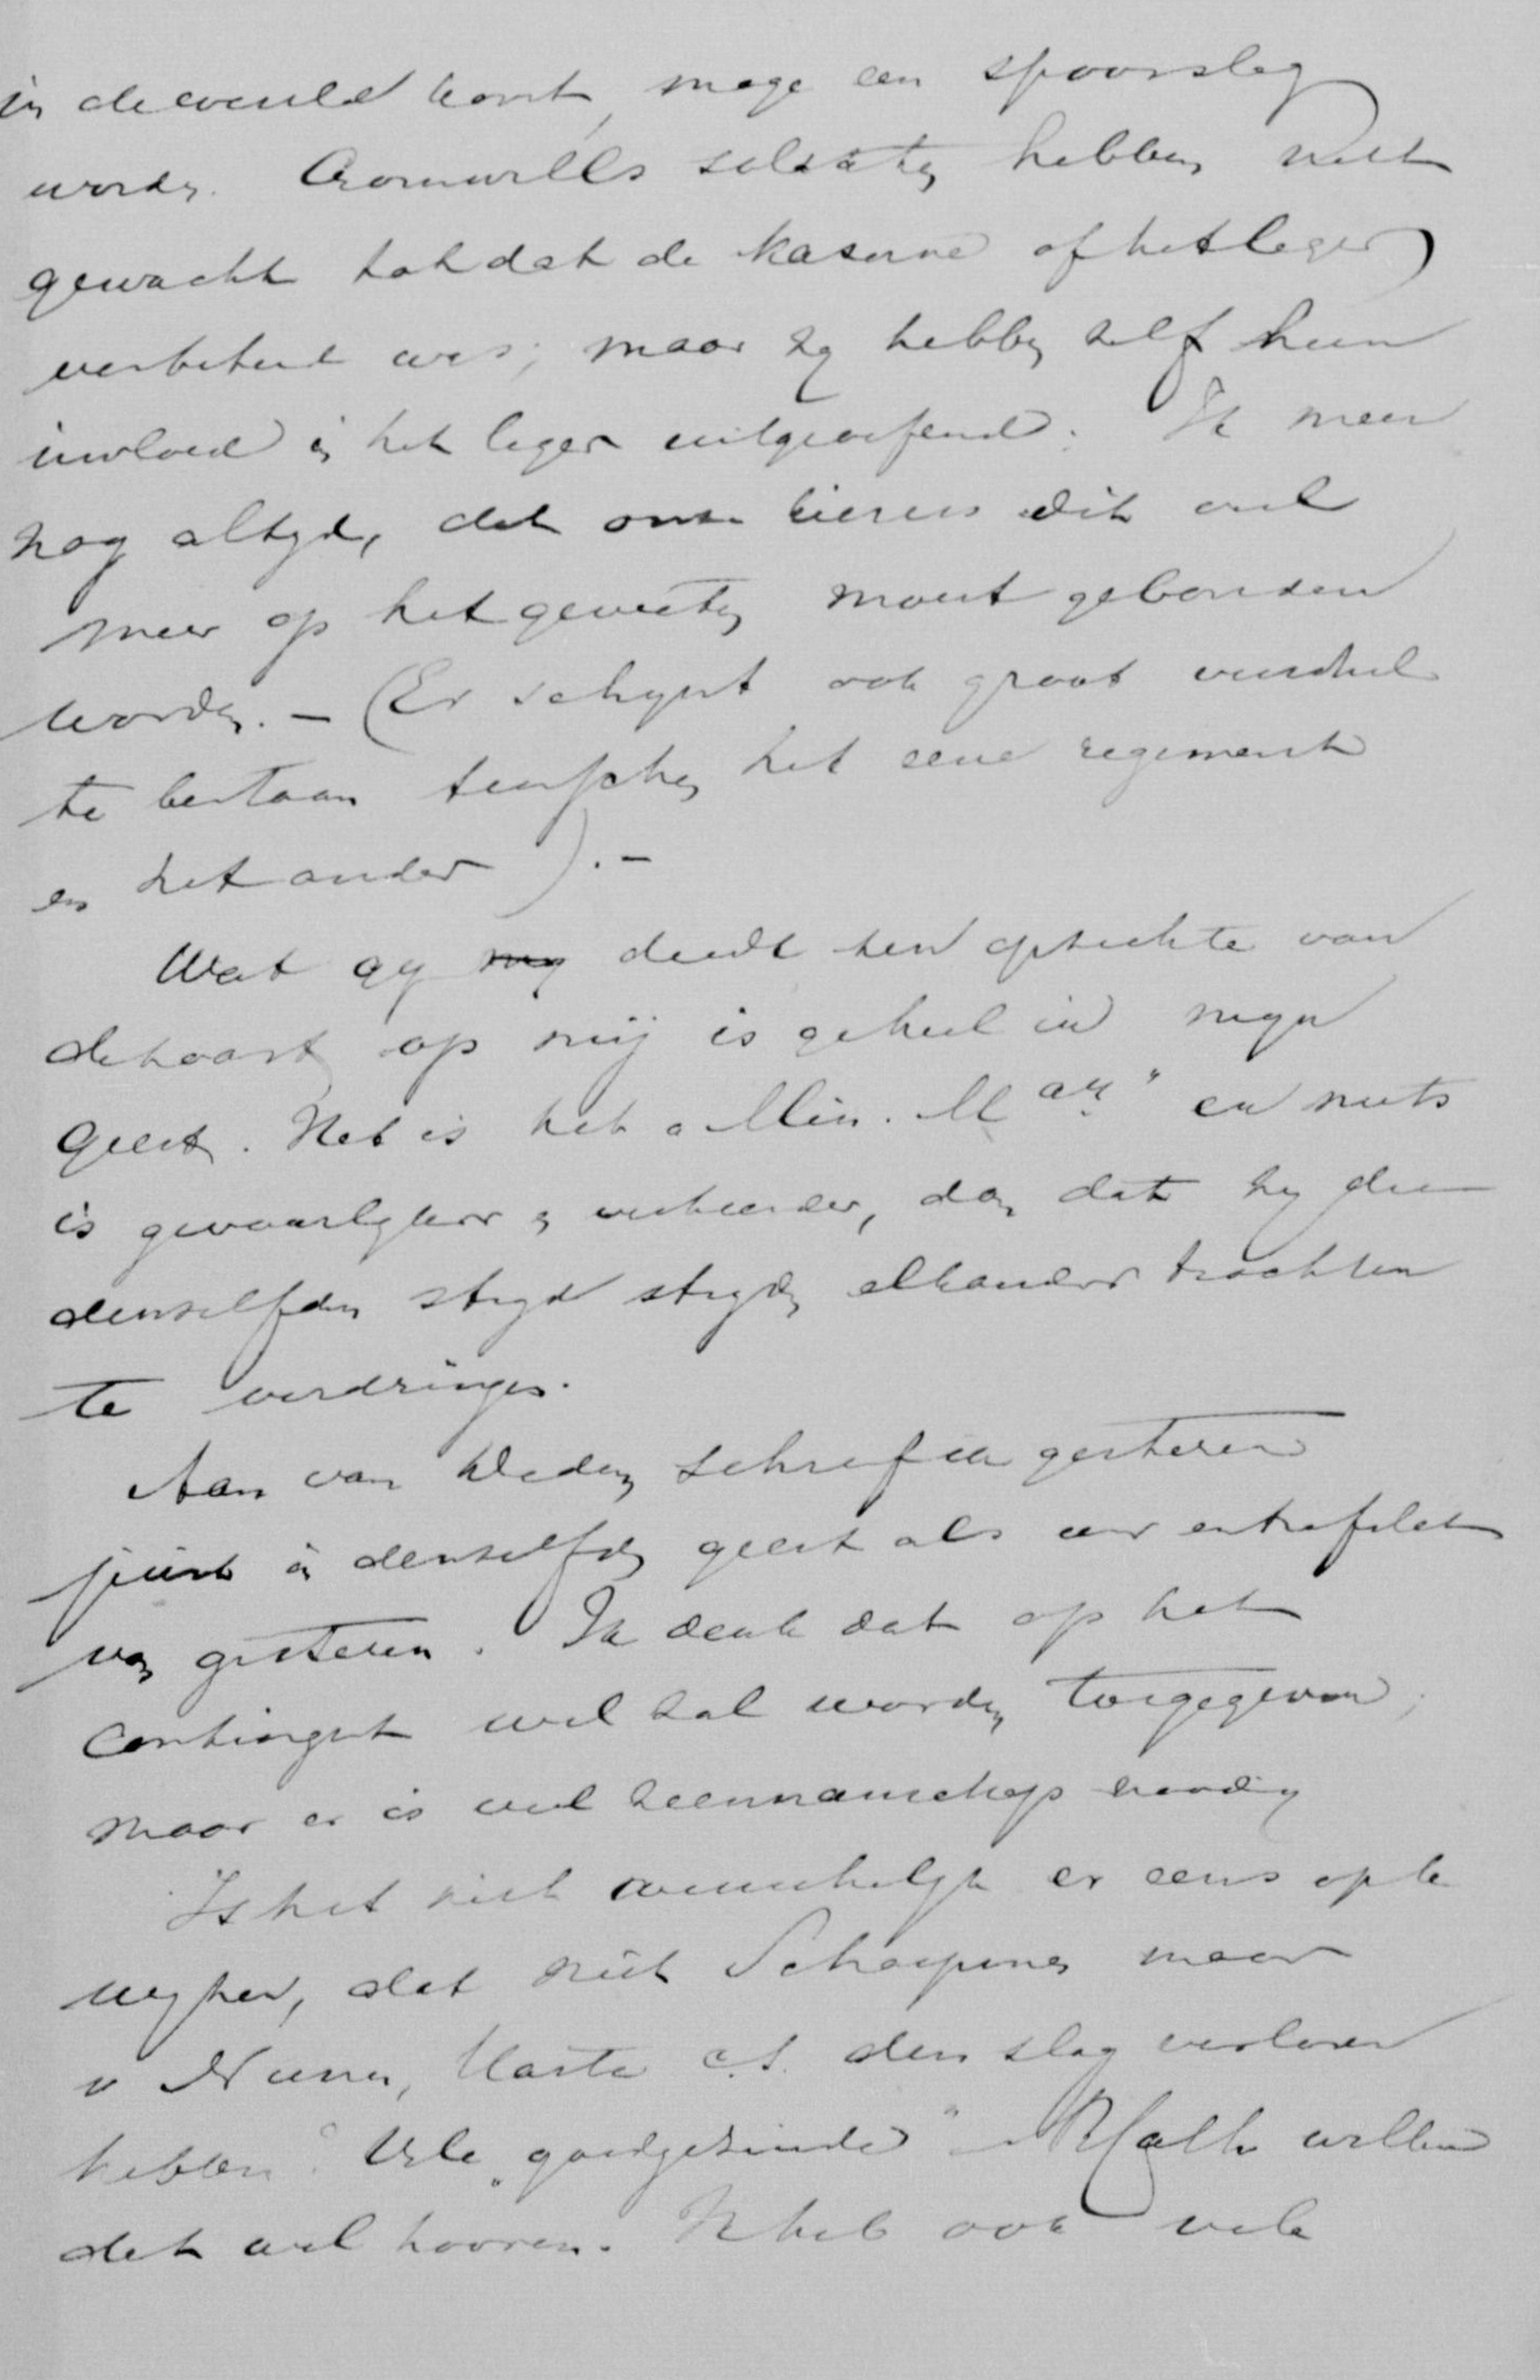 in de wereld komt, mage een spoorslag
worden. Cromwells soldaten hebben niet
gewacht totdat de kaserne of het leger
verbeterd was; maar zy hebben zelf hun
invloed in het leger uitgeoefend. Ik meen
nog altyd, dat onze dit veel
meer op het geweten moest gebonden
worden. - (Er schynt ook groot verschil
te bestaan tusschen het eene regiment
en het ander). -
Wat gy deedt ten opzichte van
de kaart op mij is geheel in myn
geest. Het is het en niets
is gevaarlyker en verkeerder, dan dat zy die
denzelfden stryd stryden elkander trachten
te verdringen.
Aan van schreef ik gisteren
juist in denzelfden geest als uw entrefilet
van gisteren. Ik denk dat op het
contingent wel zal worden toegegeven;
maar er is veel noodig
Is het niet wenschelyk er eens op te
wyzen, dat niet Schaepman maar
v Nunen, Harte c.s. den slag verloren
hebben. Vele "goedgezinde" willen
dat wel hooren. Ik heb ook vele